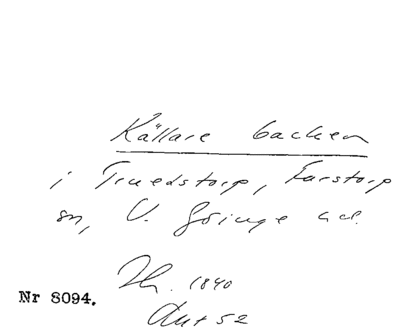 Källare backen
i Truedstorp, Farstorp
sn, V. Göinge hd.
Nr 8094.
1840
Akt 52